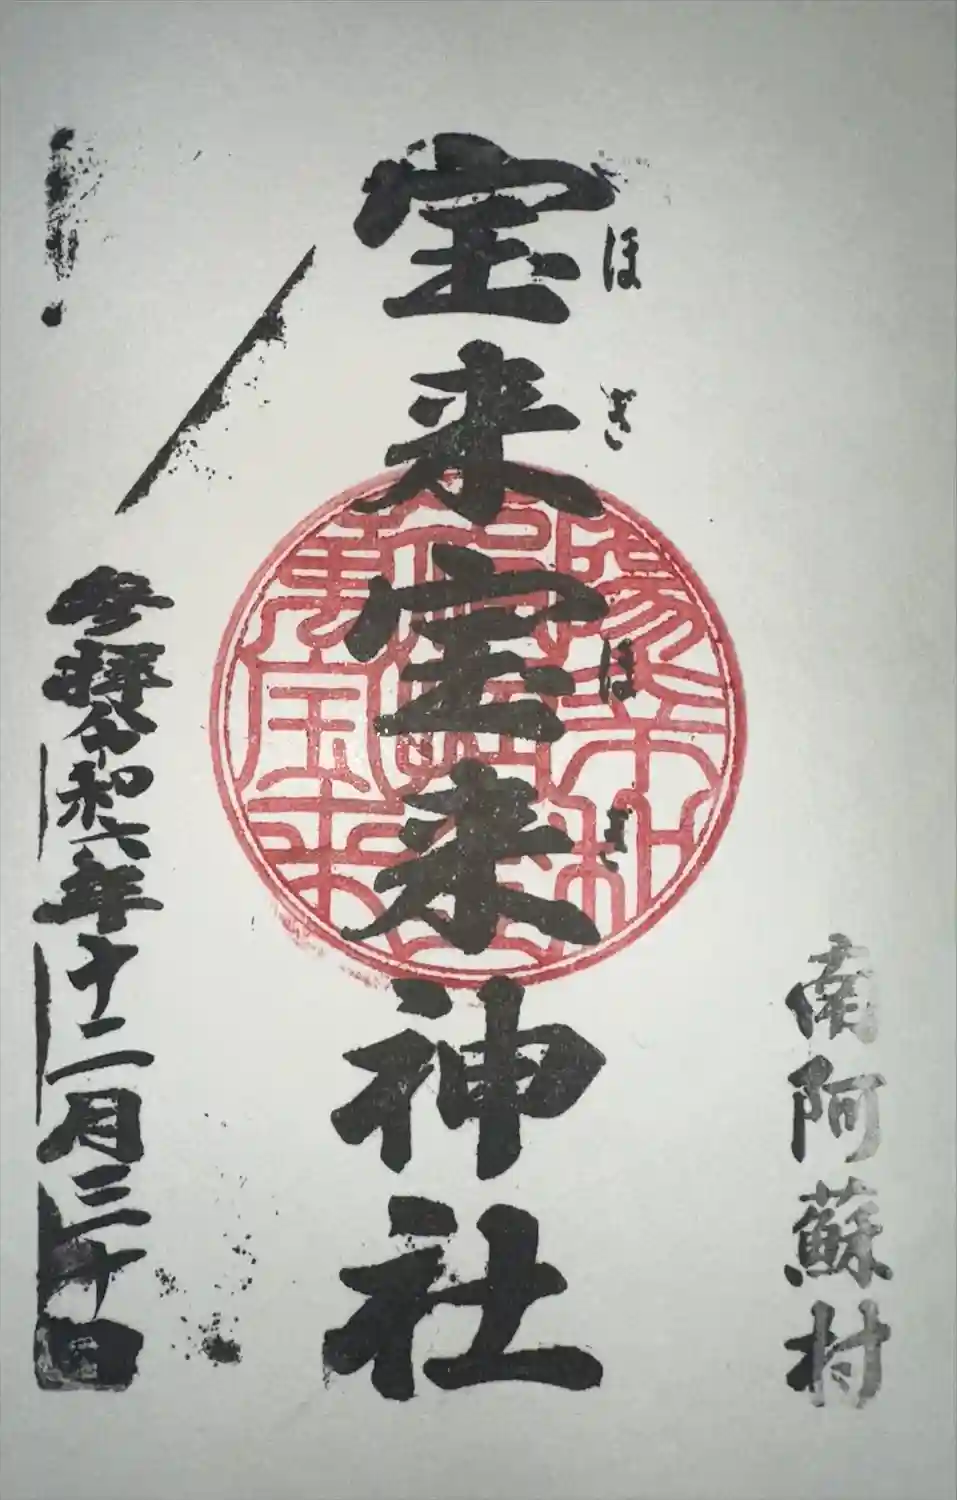 南阿蘇村
宝来宝来神社
ほぎほぎ
参拝令和六年十二月三十日